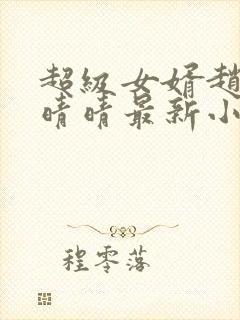 超级女婿趙
晴晴最新小
程零落